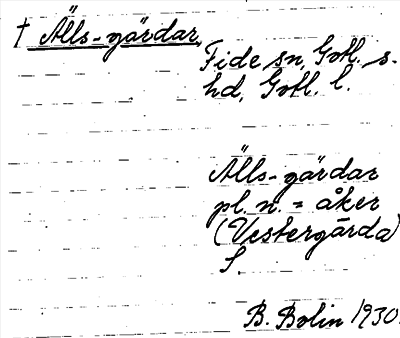 † Älls-gärdar,
Fide sn, Gotl. s.
hd, Gotl. l.
Älls-gärdar
pl. n. = åker
(Vestergårda)
S.
B. Bolin 1930.